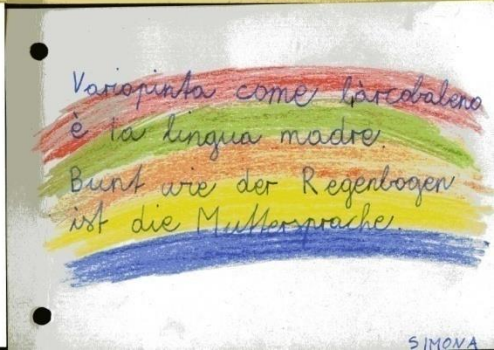 Variopinta come l'arcobaleno
è la lingua madre.
Bunt wie der Regenbogen
ist die Muttersprache.
SIMONA